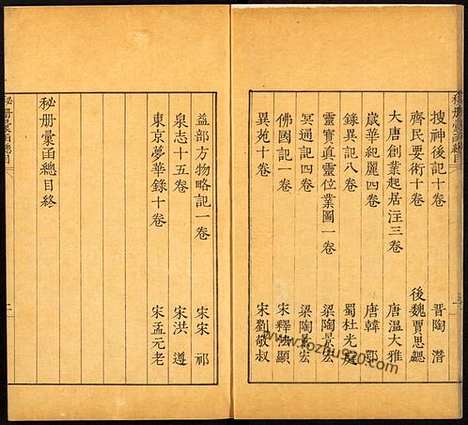 秘册彙函總目
搜神後記十卷 晋陶潛
齊民要術十卷 後魏賈思勰
大唐創業起居注三卷 唐溫大雅
歲華紀麗四卷 唐韓鄂
錄異記八卷 蜀杜光庭
靈寶眞靈位業圖一卷 梁陶景宏
冥通記四卷 梁陶景宏
佛國記一卷 宋釋法顯
異苑十卷 宋劉敬叔
益部方物略記一卷 宋宋祁
泉志十五卷 宋洪遵
東京夢華錄十卷 宋孟元老
秘册彙函總目終
秘册彙函總目
二